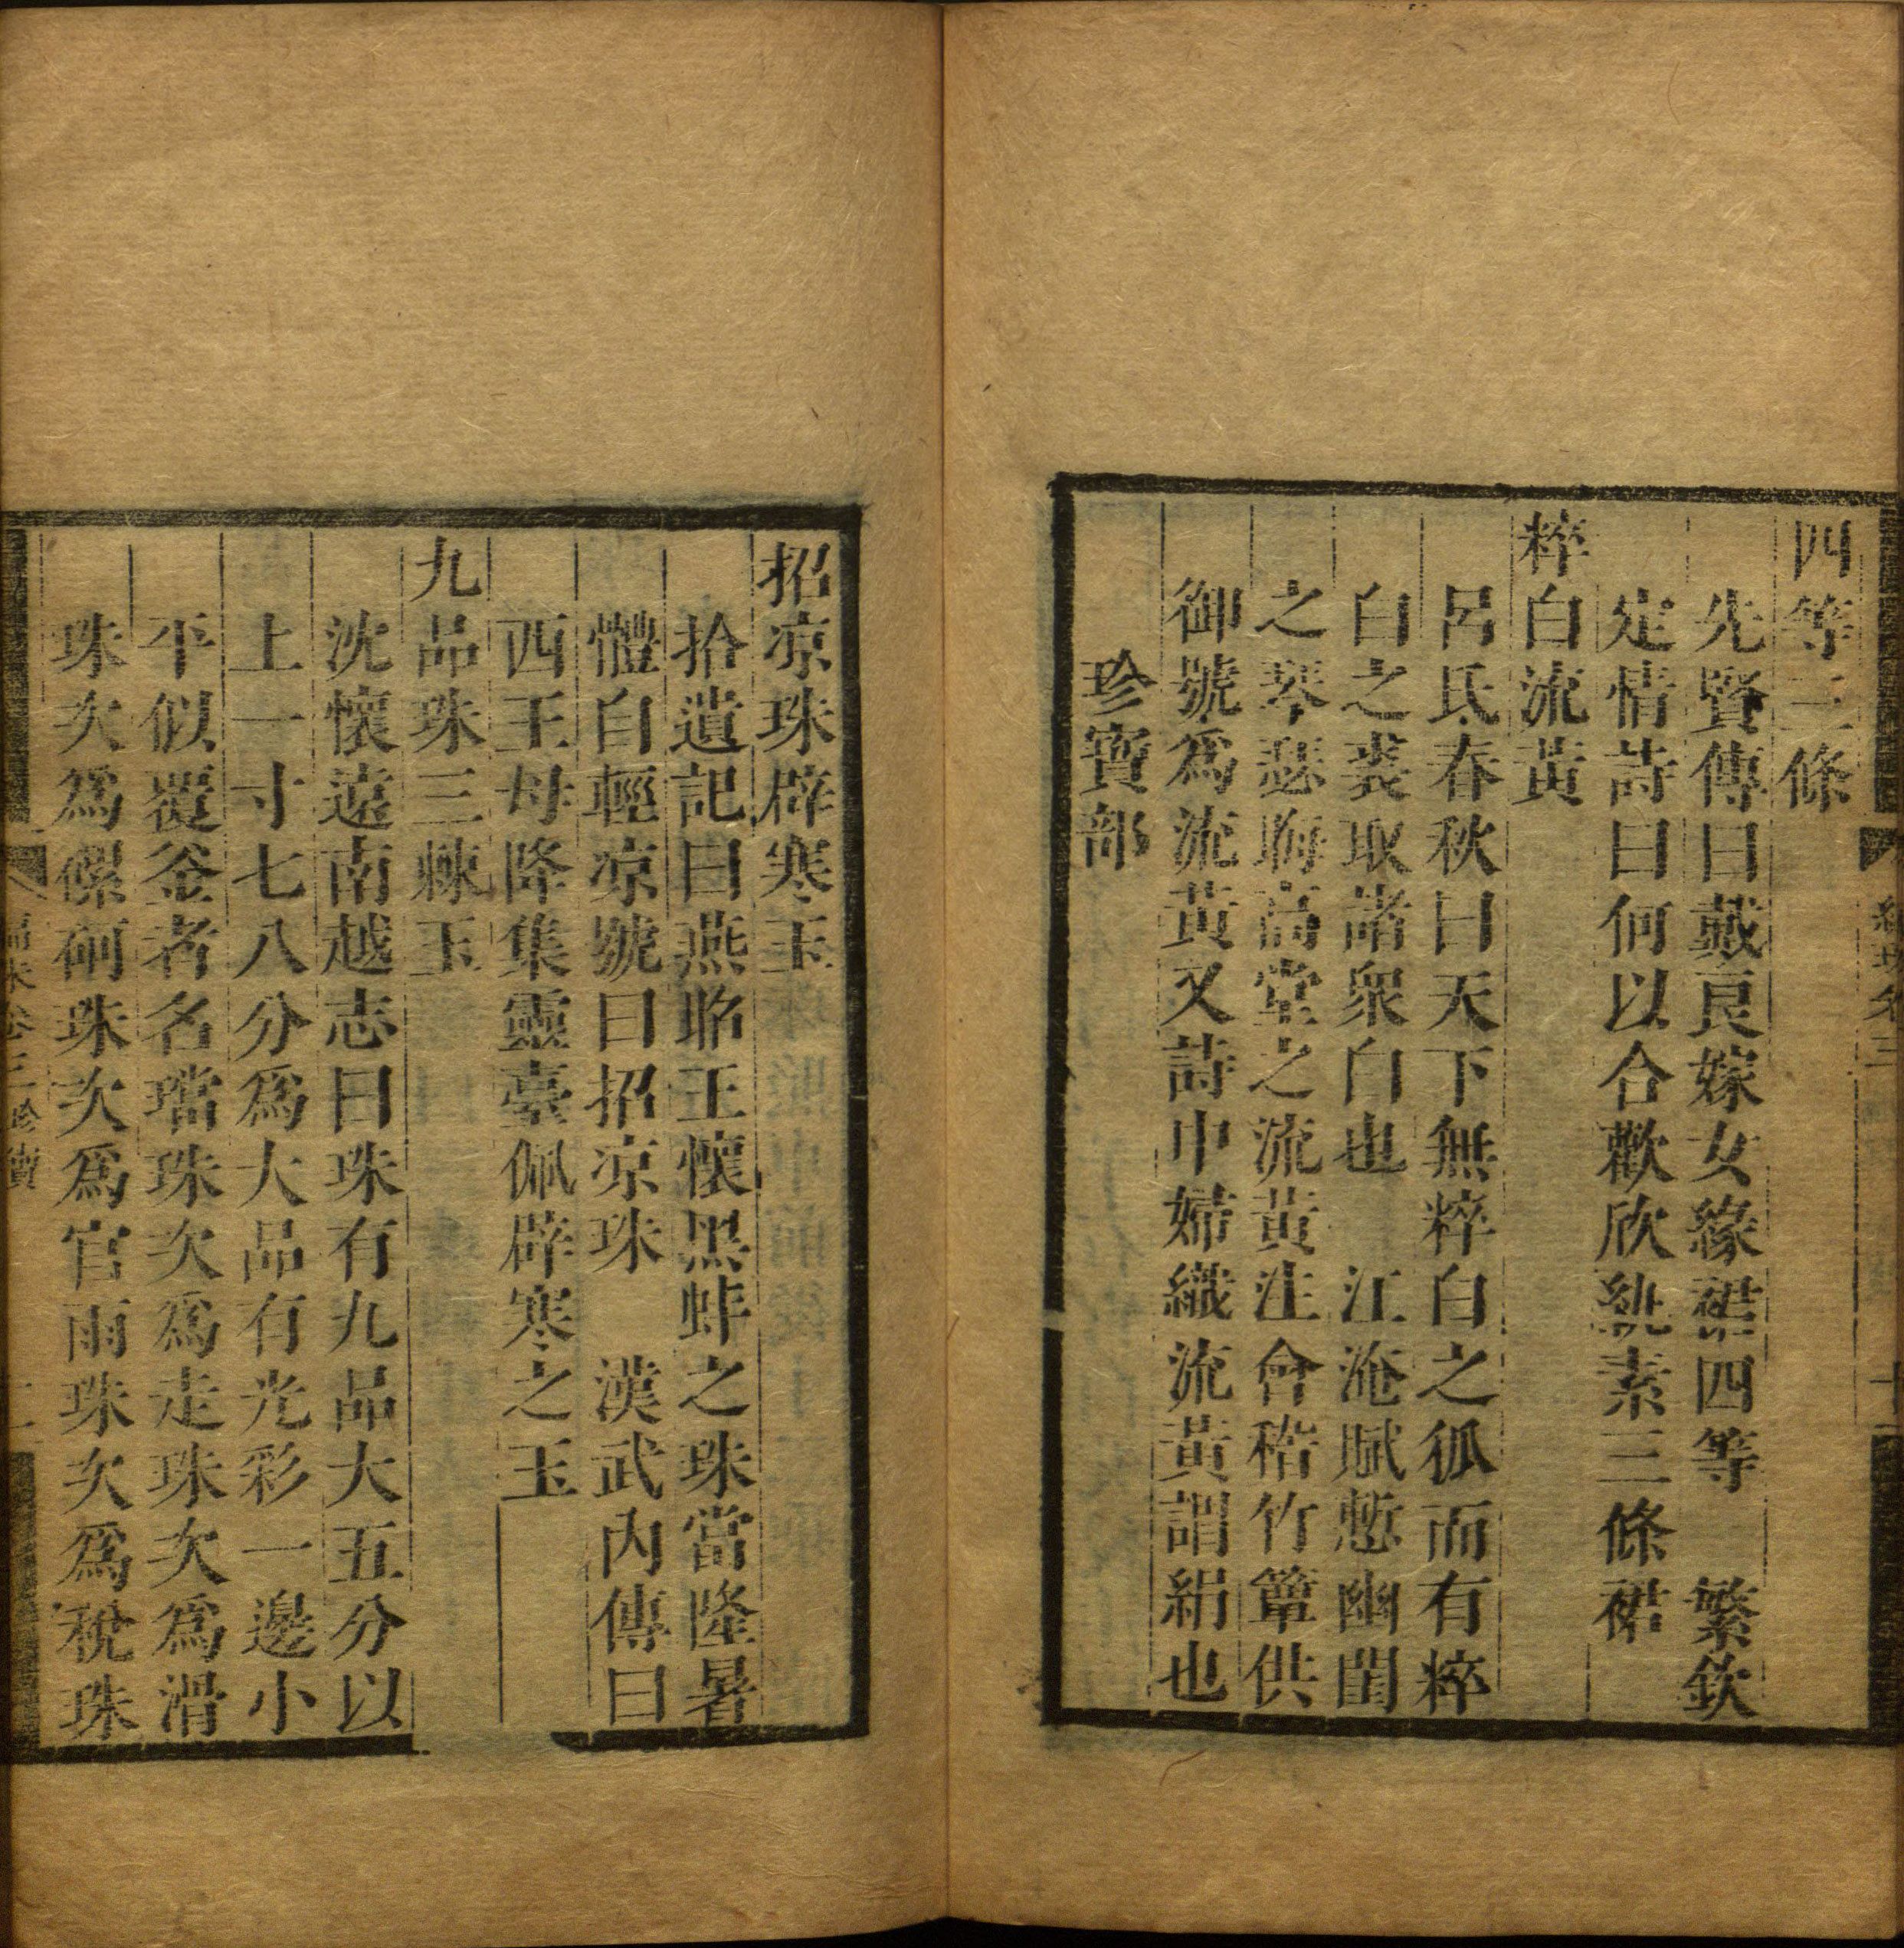 四等三條
先賢傳曰戴良嫁女緣裙四等　繁欽
定情詩曰何以合歡欣紈素三條裙
粹白流黃
呂氏春秋曰天下無粹白之狐而有粹
白之裘取諸衆白也　江淹賦慙幽閨
之琴瑟晦高堂之流黃注會稽竹簟供
御號爲流黃又詩中婦織流黃謂絹也
珍寶部
招凉珠辟寒玉
拾遺記曰燕昭王懷黑蚌之珠當隆暑
體自輕凉號曰招凉珠　漢武內傳曰
西王母降集靈臺佩辟寒之玉
九品珠三棘玉
沈懷遠南越志曰珠有九品大五分以
上一寸七八分爲大品有光彩一邊小
平似覆釜者名璫珠次爲走珠次爲滑
珠次爲磥砢珠次爲官雨珠次爲稅珠